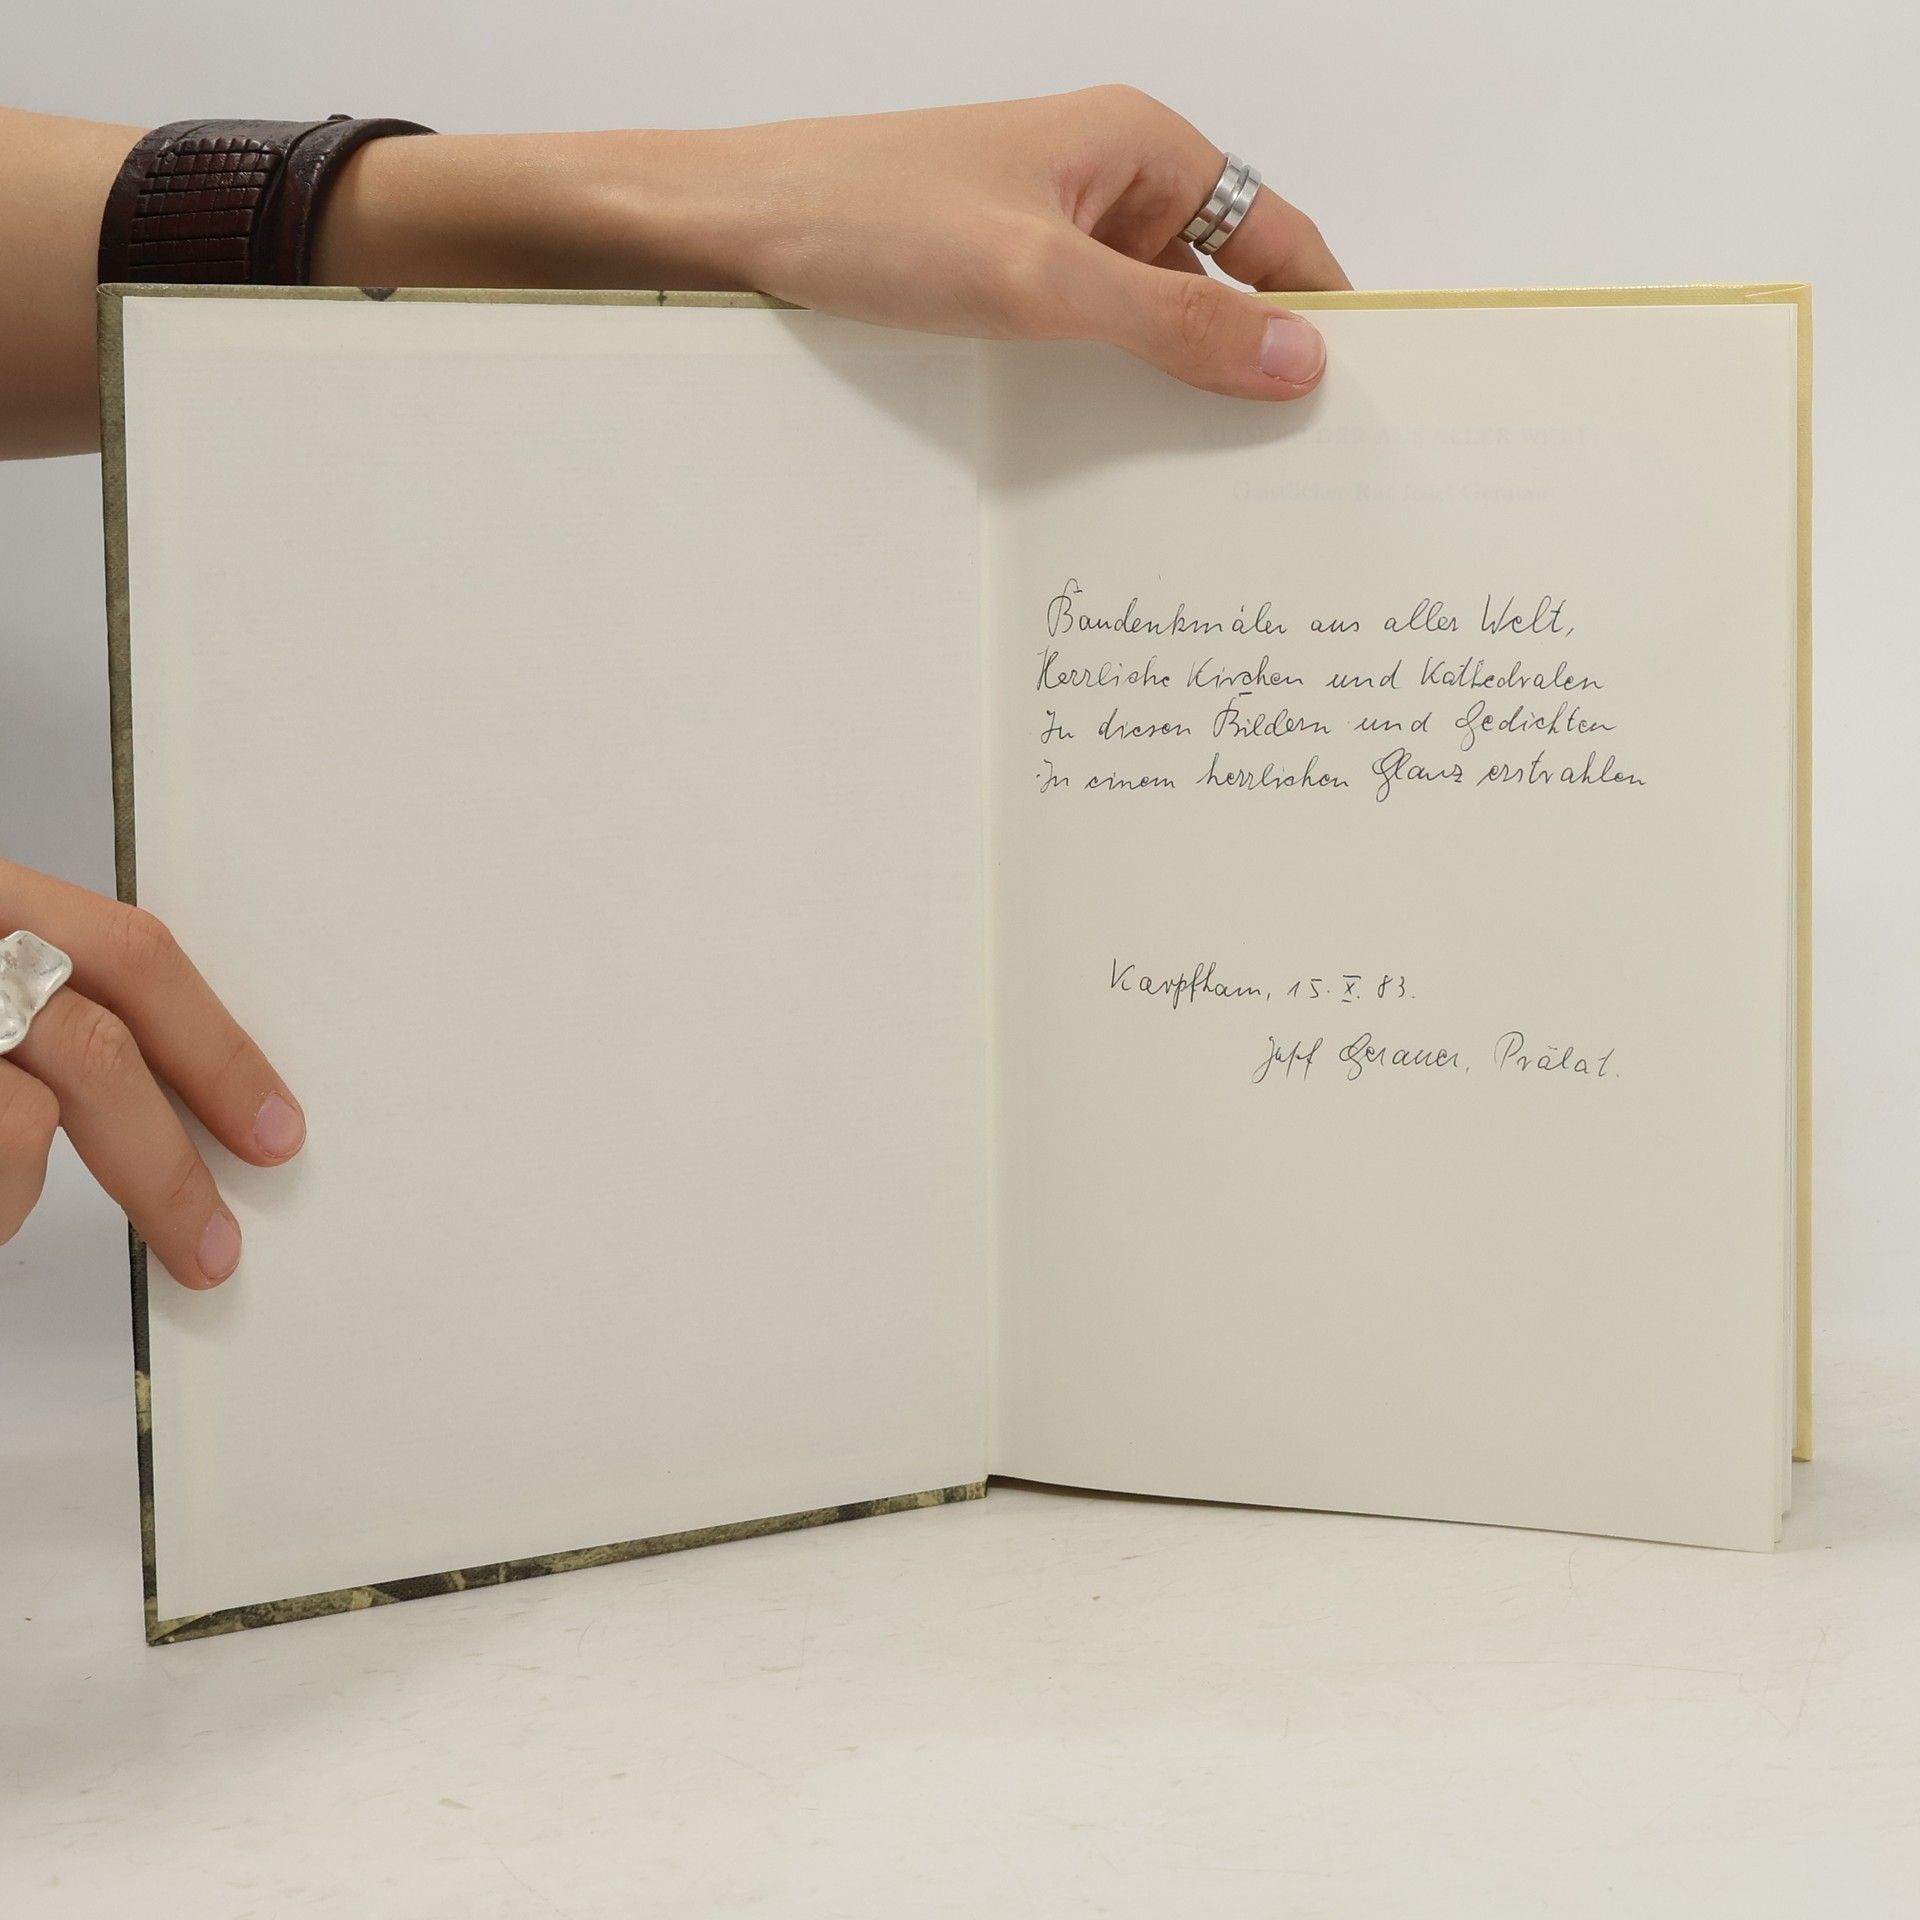 AUS ALLER WELT
Geistlicher Rat Josef Gerauer
Baudenkmäler aus aller Welt,
Herrliche Kirchen und Kathedralen
In diesen Bildern und Gedichten
In einem herrlichen Glanz erstrahlen
Karpfham, 15. X. 83.
Josef Gerauer, Prälat.